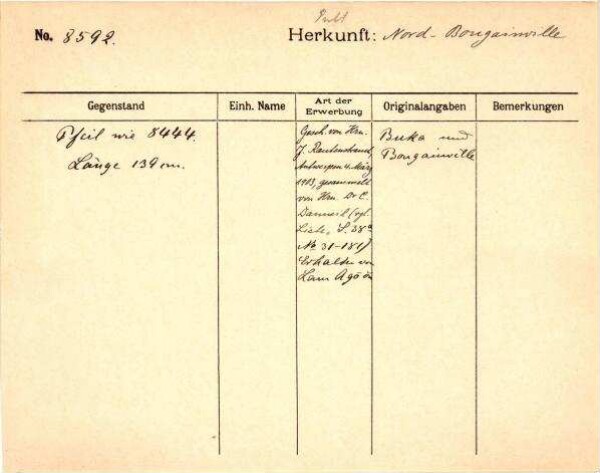 No. 8592.
Herkunft: Nord-Bougainville
Gegenstand
Einh. Name
Art der
Erwerbung
Originalangaben
Bemerkungen
Pfeil wie 8444.
Länge 139 cm.
Gesch. von Hrn.
J. Rautenstrauch,
Antwerpen 4. März
1913, gesammelt
von Hrn. Dr E.
(vgl.
Liste, S. 38a
No 31-181)
Erhalten von
Buka und
Bougainville